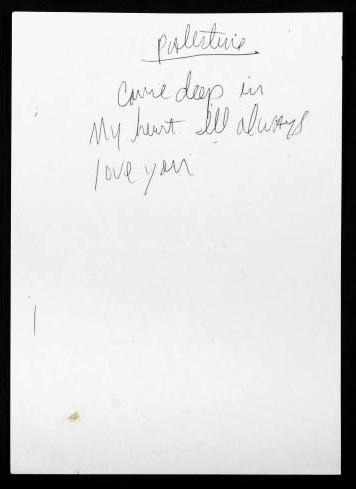 Palestine
Come deep in
My heart I'll always
love you